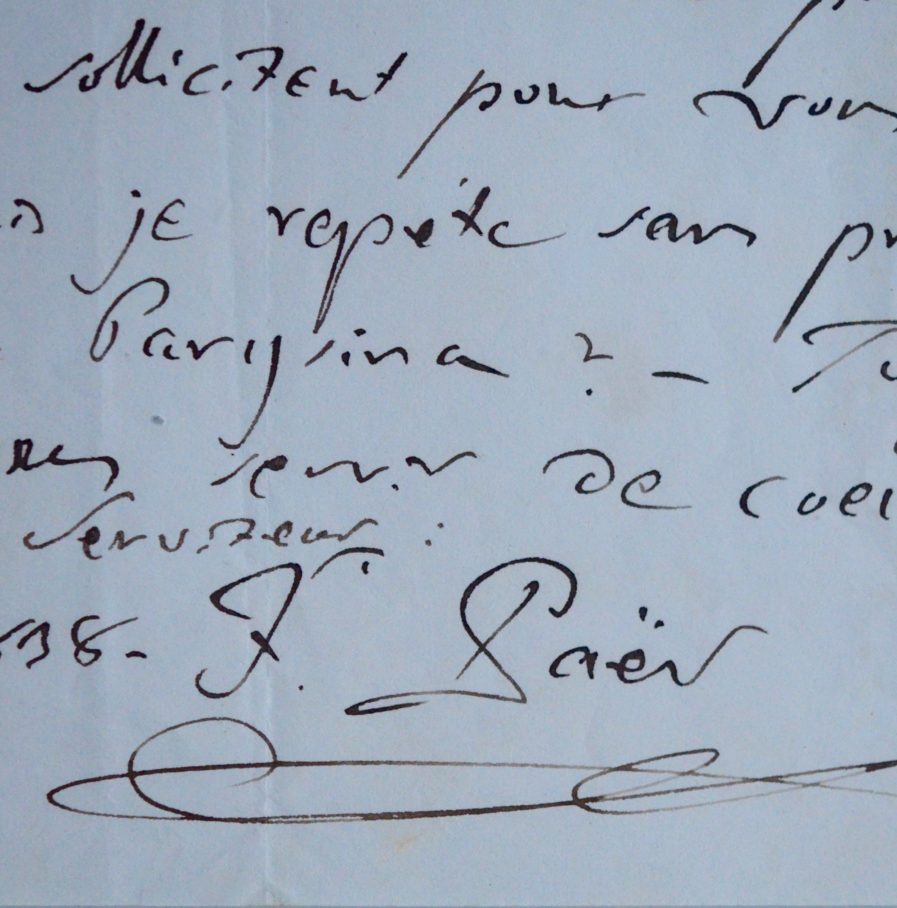 sollicitent pour vous
je repète sans
Parisina ? –
servir de
Serviteur :
38 - F. Paër